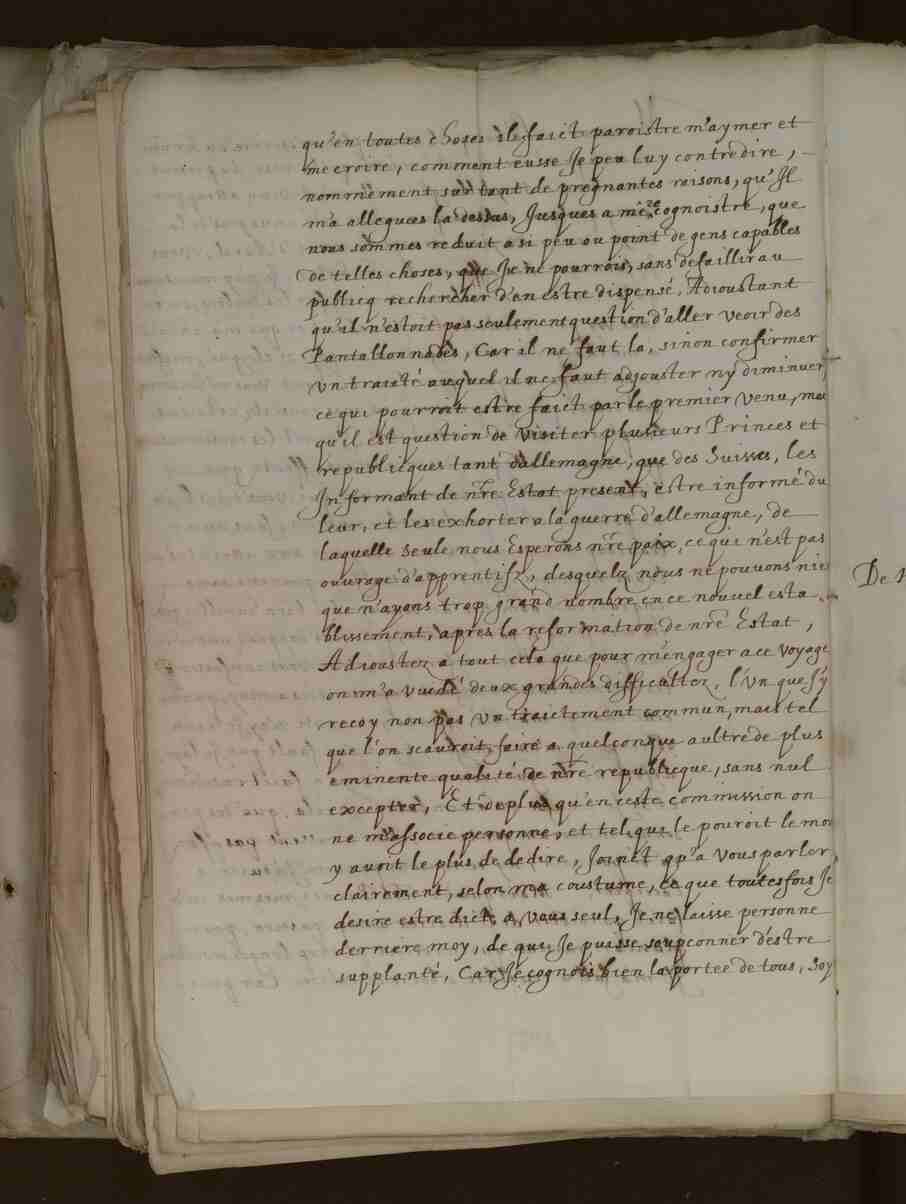 qu'en toutes choses il faict paroistre m'aymer et
me croire, comment eusse Je peu luy contredire,
nommément sur tant de pregnantes raisons, qu'Il
m'a alleguees la dessus, Jusques a me recognoistre, que
nous sommes reduit a si peu ou point de gens capables
de telles choses, que Je ne pourrois, sans défaillir au
publicq rechercher d'en estre dispensé, Adioustant
qu'il n'estoit pas seulement question d'aller veoir des
Pantallonnades, Car il ne faut la, sinon confirmer
un traicté auquel il ne faut adjouster ny diminuer,
ce qui pourroit estre faict par le premier venu, mai
qu'il est question de visiter plusieurs Princes et
republicques tant d'allemagne, que des Suisses, les
Informant de nre Estat present, estre informé du
leur, et les exhorter a la guerre d'allemagne, de
laquelle seule nous Esperons nre paix, ce qui n'est pas
ouvrage d'apprentifz, desquelz nous ne pouvons nie
que n'ayons trop grand nombre en ce nouvel esta
blissement, apres la reformation de nre Estat,
Adioustez a tout cela que pour m'engager a ce voyage
on m'a vuidé deux grandes difficultez, l'Un que J'y
recoy non pas Un traictement commun, mais tel
que l'on scauroit faire a quelconque aultre de plus
eminente qualité de nre republicque, sans nul
excepter, Et de plus qu'en ceste commission on
ne m'associe personne, et tel qui le pouroit le moi
y auroit le plus de dedire, Joinct qu'a vous parler
clairement, selon ma coustume, ce que toutesfois Je
desire estre dict a vous seul, Je ne laisse personne
derriere moy, de qui Je puisse soupconner d'estre
supplanté, Car Je cognois bien la portee de tous, soy
De